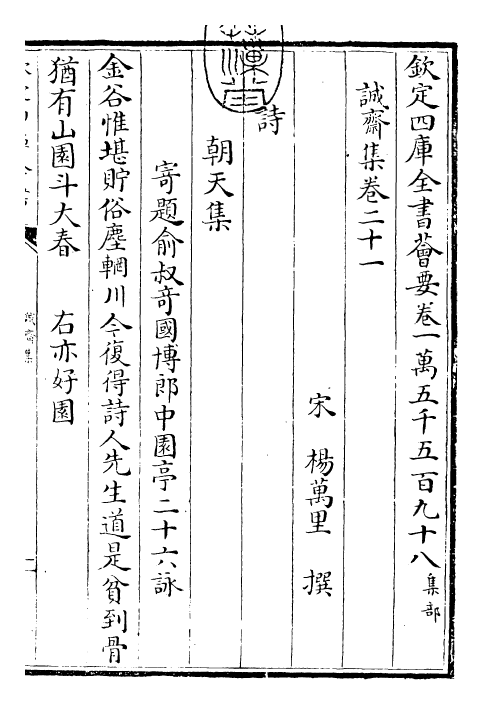 欽定四庫全書薈要卷一萬五千五百九十八 集部
誠齋集卷二十一
宋 楊萬里 撰
詩
朝天集
寄題俞叔奇國博郎中園亭二十六詠
金谷惟堪貯俗塵輞川今復得詩人先生道是貧到骨
猶有山園斗大春 右亦好園